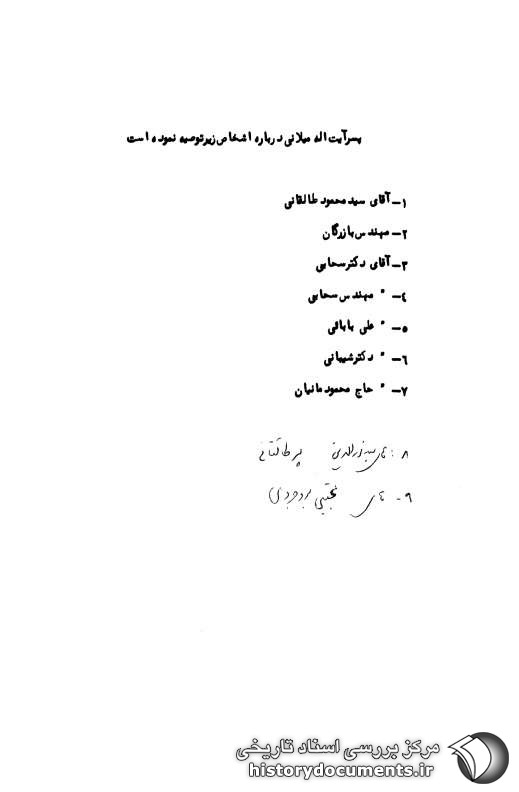 پسر آیت اله میلانی درباره اشخاص زیر توصیه نموده است
۱- آقای سید محمود طالقانی
۲- مهندس بازرگان
۳- آقای دکتر سحابی
٤- " مهندس سحابی
۵- " علی بابائی
٦- " دکتر شیبانی
۷- " حاج محمود مانیان
۸- طالقانی
۹- آقای مجتبی بروجردی
مرکز بررسی اسناد تاریخی
historydocuments.ir